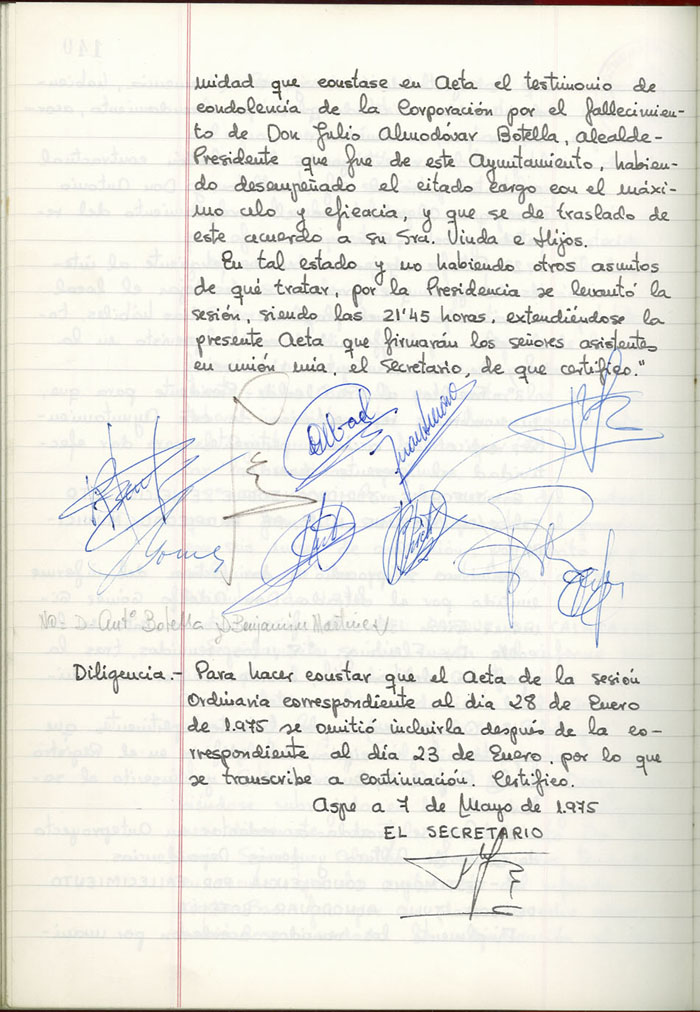 nidad que constase en Acta el testimonio de
condolencia de la Corporación por el fallecimien-
to de Don Julio Almodóvar Botella, alcalde-
Presidente que fue de este Ayuntamiento, habien-
do desempeñado el citado cargo con el máxi-
mo celo y eficacia, y que se de traslado de
este acuerdo a su Sra. Viuda e Hijos.
En tal estado y no habiendo otros asuntos
de qué tratar, por la Presidencia se levantó la
sesión, siendo las 21'45 horas, extendiéndose la
presente Acta que firmarán los señores asistentes
en unión mía, el Secretario, de que certifico."
No: D. Antº Botella y Benjamín Martínez
Diligencia.- Para hacer constar que el Acta de la sesión
Ordinaria correspondiente al día 28 de Enero
de 1.975 se omitió incluirla después de la co-
rrespondiente al día 23 de Enero, por lo que
se transcribe a continuación. Certifico.
Aspe a 7 de Mayo de 1.975
EL SECRETARIO